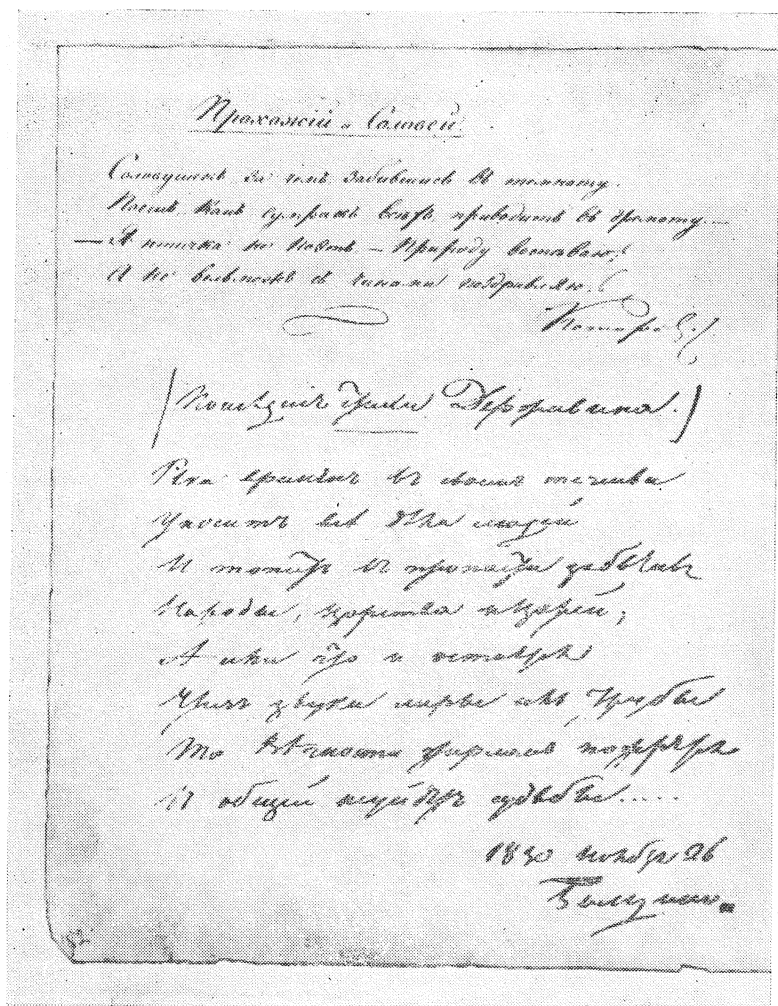 Прохожій и Соловей.
Соловушекъ за чемъ забившись въ темноту.
Поешь
— А птичка не поетъ — Природу воспеваю!
А не вельможъ съ чинами поздравляю.
Державина.)
Река временъ въ своемъ теченьи
Уноситъ все дѣла людей
И топитъ въ пропасти забвѣнья
Народы, царства и царей;
А если что и остается
Чрезъ звуки лиры иль трубы
То вѣчности жерломъ пожрется
И общей не уйдетъ судьбы.....
1830 ноября 26